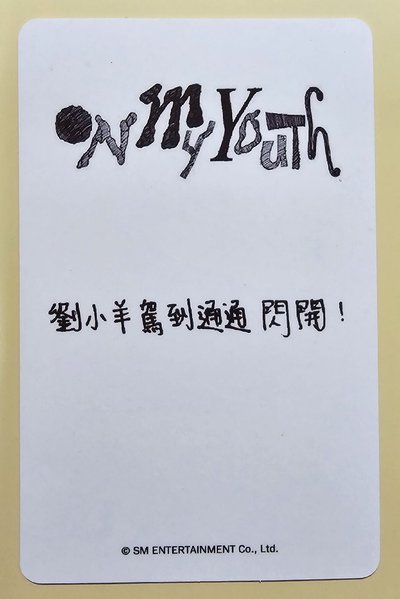 ON MY YOUTH
劉小羊駕到通通閃開！
© SM ENTERTAINMENT Co., Ltd.